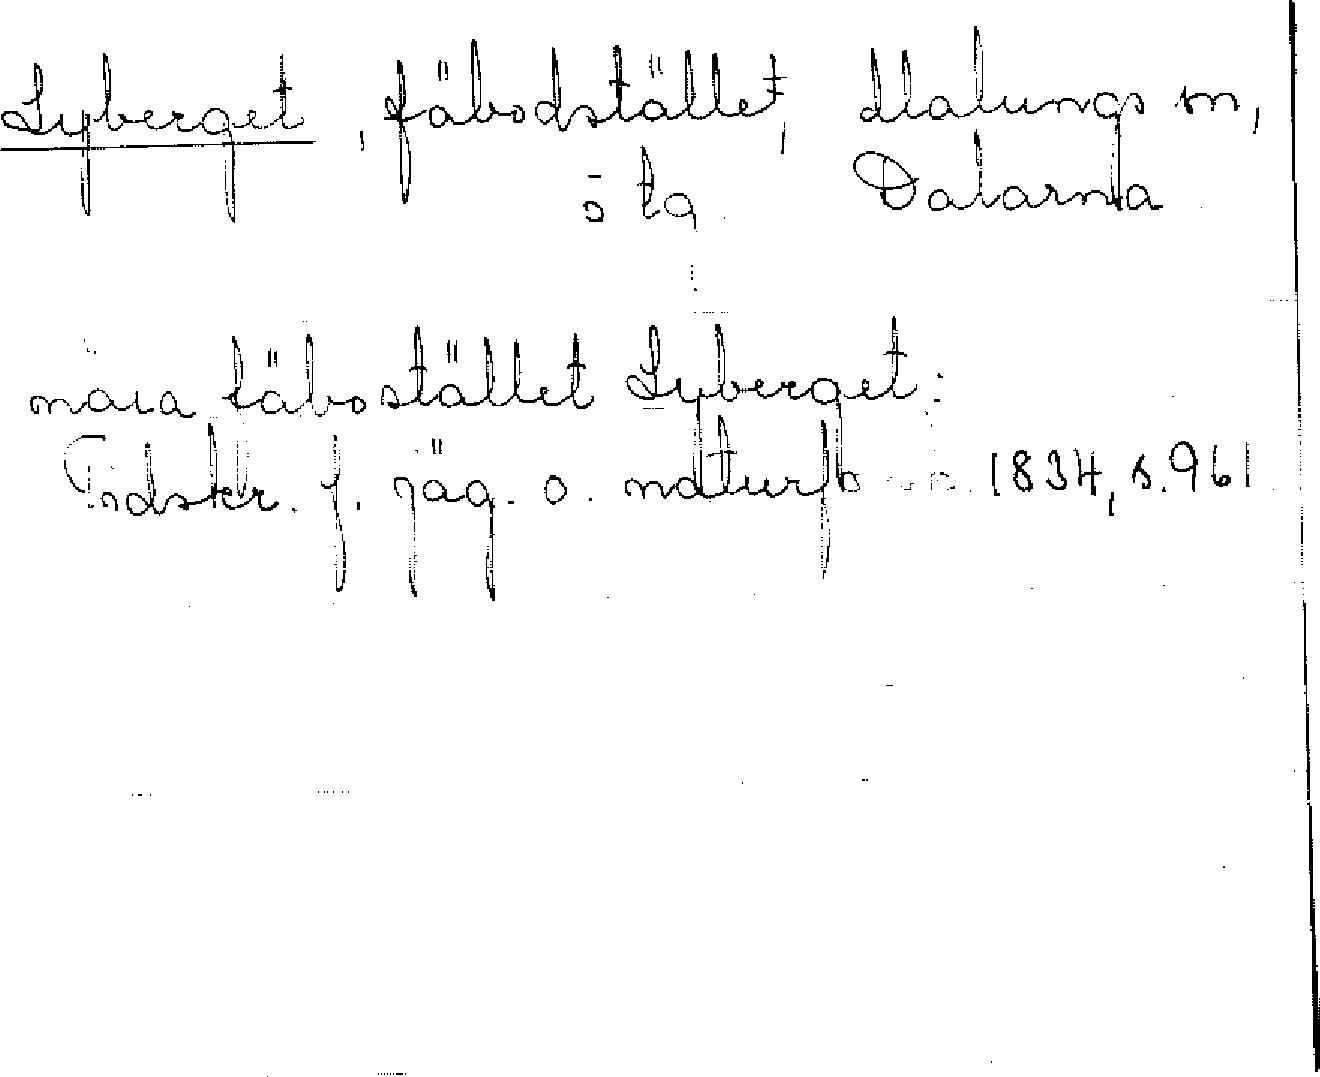 Lyberget, fäbodstället, Malungs sn,
ö ta Dalarna
nära fäbostället Lyberget:
Tidskr. f. jäg. o. naturf 1834, s. 961